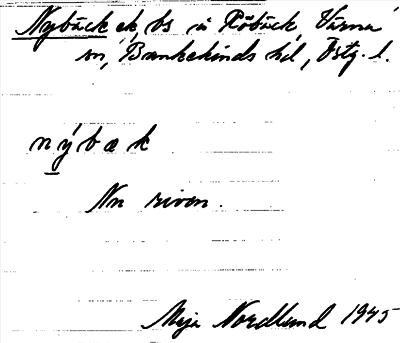 Nybäck ek, bs å Röbäck, Värna
sn, Bankekinds hd, Östg. l.
nýbæk
Nu riven.
Maja Nordlund 1945